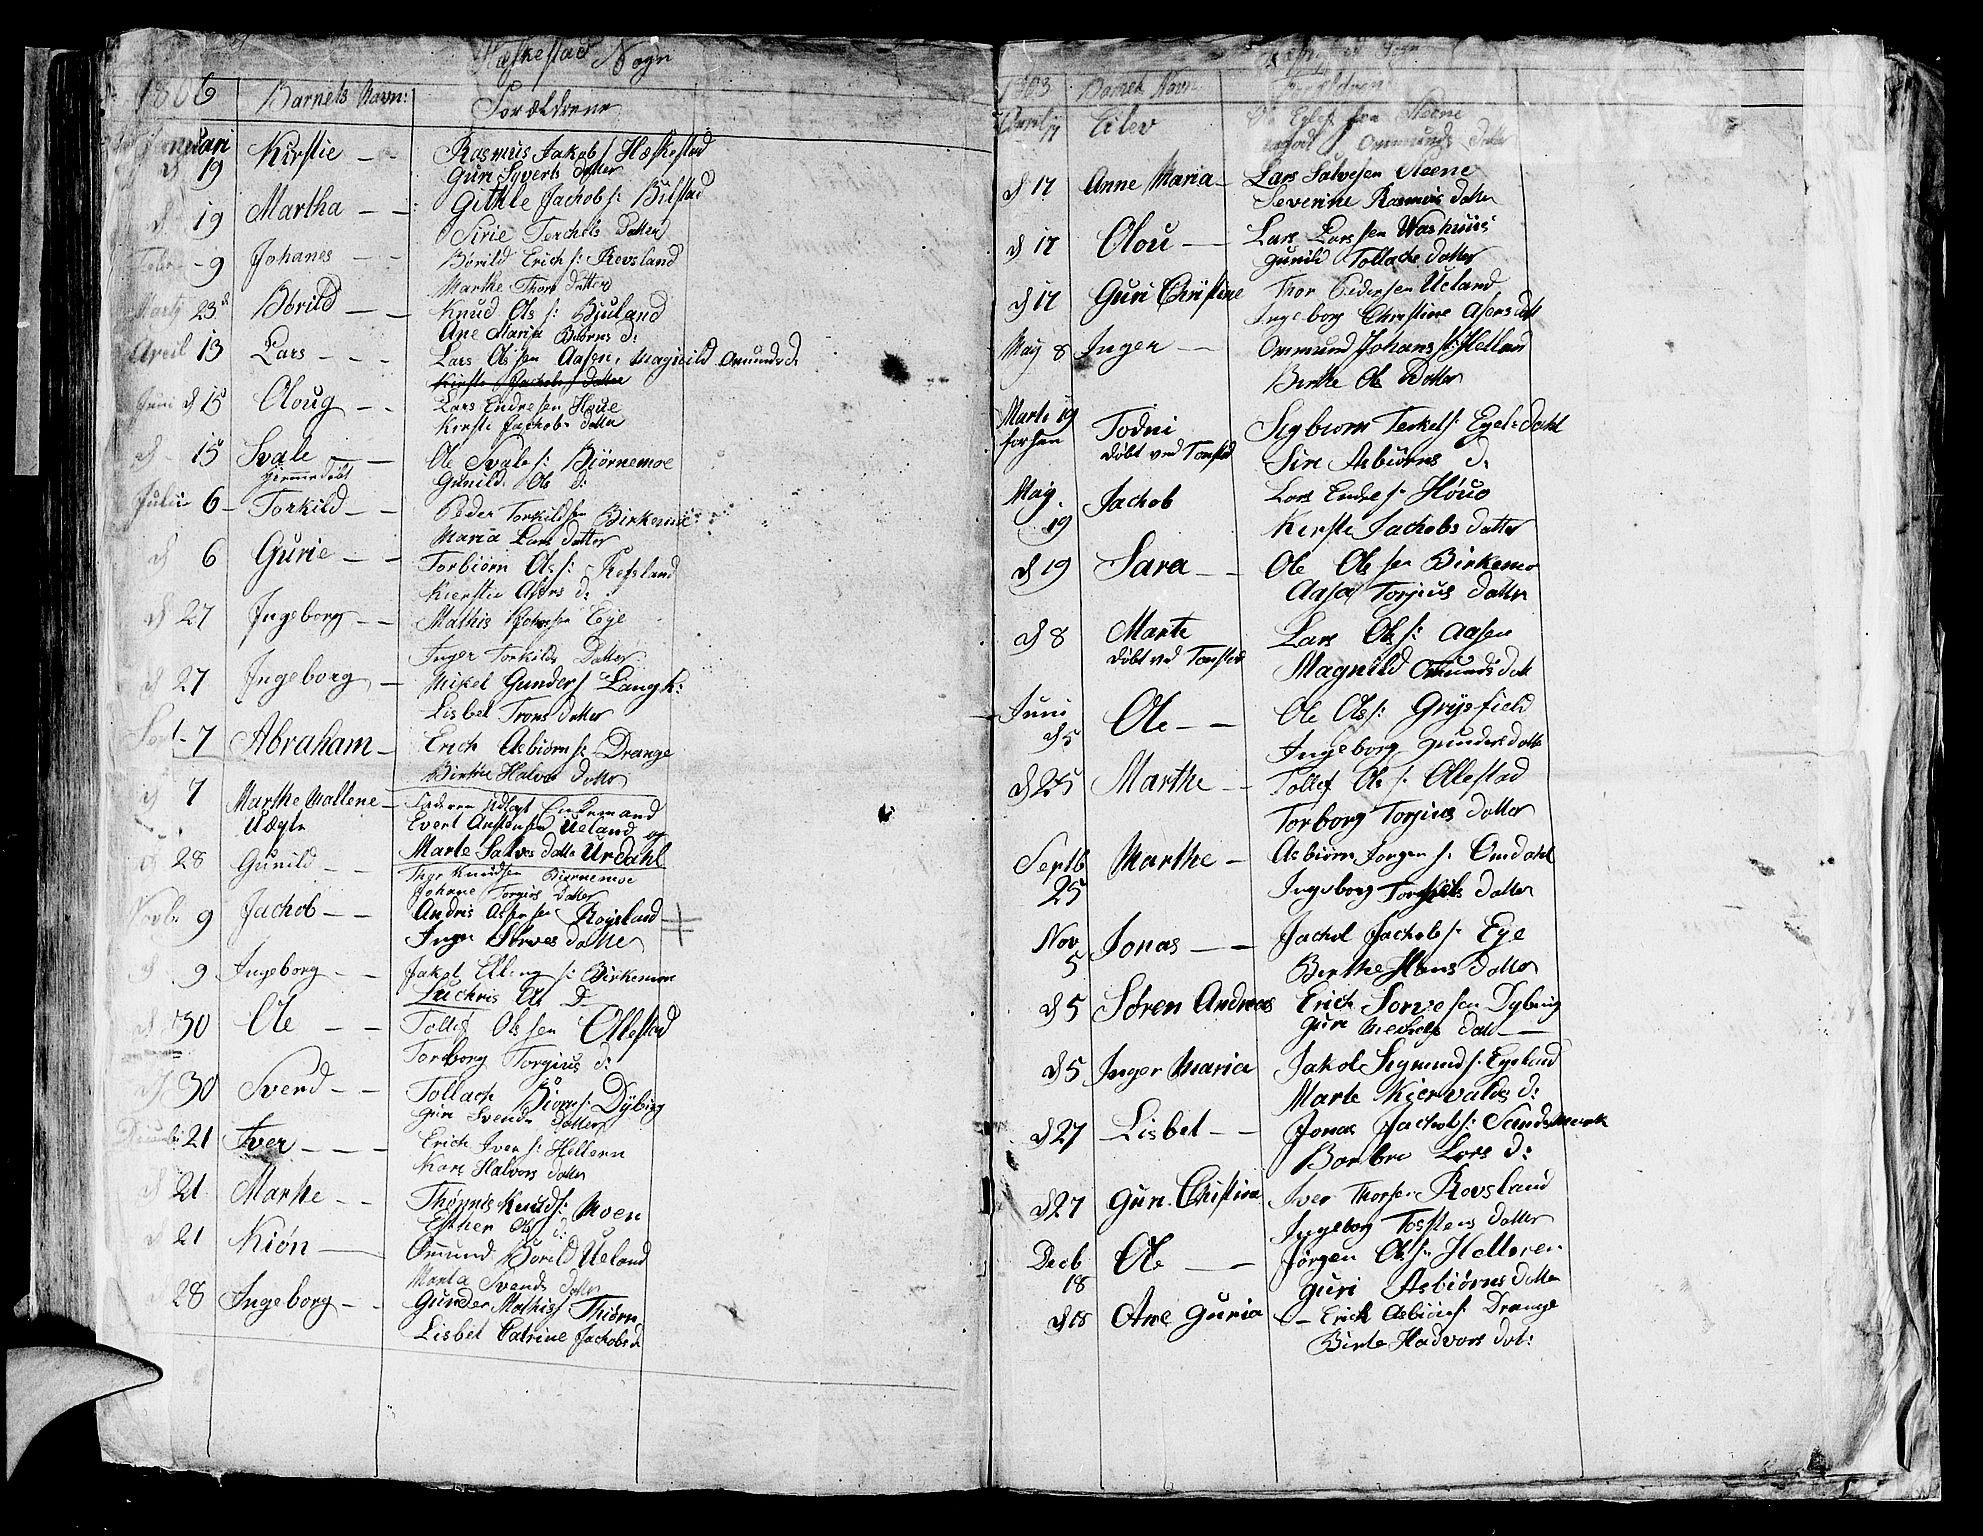 Hæskestad Sogn
1806 Barnets Navn: Forældrene
Januari
d 19 Kirstie Rasmus Jakobs Hæskestad
Guri Syverts datter
19 Martha Githle Jachobs: Bilstad
Sirie Terchels Datter
Febr 9 Johanes Børild Erich s: Revsland
Marthe Thors datter
Martj 23 Børild Knud Ols s: Bjuland
Ane Maria Biørns d:
April 13 Lars Lars Olssen Aasen, Magnild Omundsd
Kirste Jachobs datter
Juni d 15 Oloug Lars Endresen Houe
Kirsti Jachobs datter
d 15 Svale Ole Svales: Bjørnemoe
Hiemmedøbt Gunild Ols d:
Julii 6 Torkild Peder Torkilds Birkemoe
Maria Lars datter
d 6 Gurie Torbiørn Ols s: Refsland
Kierstie d:
d 27 Ingeborg Mathis Eye
Inger Torkilds Datter
d 27 Ingeborg Mikel Gunders Langh:
Lisbet Trons datter
Sept 7 Abraham Erich Asbiørn s: Drange
Birthe Halvor datter
d 7 Marthe Mallene Faderen Udlagt Enkemand
Uægte Evert Austensen Ueland og
Marte Salves datter Urdahl
d 28 Gunild Knudsen Biørnemoe
Johane Torgius Datter
Novbr 9 Jachob Andris Røysland
Inger Sørves datter
d 9 Ingeborg Jakob Elling s: Birkemoe
Luchris Ols D
d 30 Ole Tollef Olssen Ollestad
Torborg Torgius d:
d 30 Svend Tollach Biørns: Dybing
Guri Svends datter
Decembr 21 Iver Erich Iver s: Hellern
Kari Halvors datter
d 21 Marthe Thønnes Knuds: Moen
Esther Ols d:
d 21 Kiøn Ommund Børild Ueland
Marta Svends datter
28 Ingeborg Gunder Mathiss Thiørn
Lisbet Catrine Jachobsd
1803 Barnets Navn Forældrene
April 17 Eilev fra Steene
Ommunds Datter
d 17 Anne Maria Lars Salvesen Steene
Severine Rasmus datter
d 17 Olou Lars Larssen Washuus
Gunild Tollachs datter
d 17 Guri Christine Thor Pedersen Ueland
Ingeborg Christine Asersdatt
Maj 8 Inger Ommund Johans s: Helland
Birthe Ols Datter
Marti 19 Todni Sigbiørn Terkels: Egelsdahl
døbt ved Tonstad Siri Asbiørns d:
Maj 19 Jachob Lars Endres: Høue
Kirste Jachobs datter
d 19 Sara Ole Olssen Birkemo
Aasa Torjius datter
d 8 Marte Lars Ols s: Aasen
døbt ved Tonstad Magnild Omunds datt
Juni
d 5 Ole Ole Ols s: Grysfield
Ingeborg Gunders datter
d 25 Marthe Tollef Ols s: Ollestad
Torborg Torjius datter
Septb 25 Marthe Asbiørn Jørgen s: Omdahl
Ingeborg datter
Nov 5 Jonas Jachob Jachobs: Eye
Birthe Hans datter
d 5 Søren Andreas Erich Sørvesen Dybing
Guri datt
d 5 Inger Maria Jakob Sigmunds: Egeland
Marte Kiervalds d:
d 27 Lisbet Jonas Jachobs: Sandsmark
Barbro Lars d:
d 27 Guri Christina Iver Thorsen Revsland
Ingeborg Tostens datter
Decb 18 Ole Jørgen Olss: Helleren
Guri Asbiørns datter
d 18 Ane Guria Erich Asbiørns: Drange
Birte Hadvors dat: